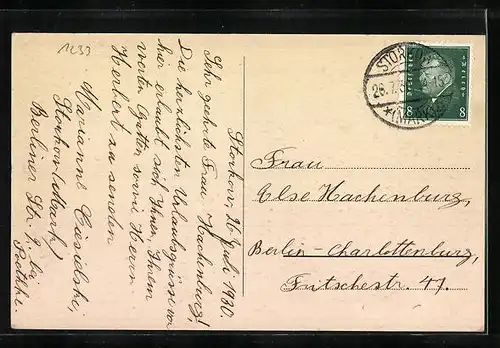 1233
Storkow, 26. Juli 1930.
Sehr geehrte Frau Hachenburg!
Die herzlichsten Urlaubsgrüsse von
hier erlaubt sich Ihnen, Ihrem
werten Gatten sowie Herrn
Herbert zu senden
Marianne
Storkow (Mark)
Berliner Str. 9, bei
STOR
26.7.
(MARK)
DEUTSCHES REICH
8 8
Frau
Else Hachenburg,
Berlin-Charlottenburg,
Fritschestr. 41.